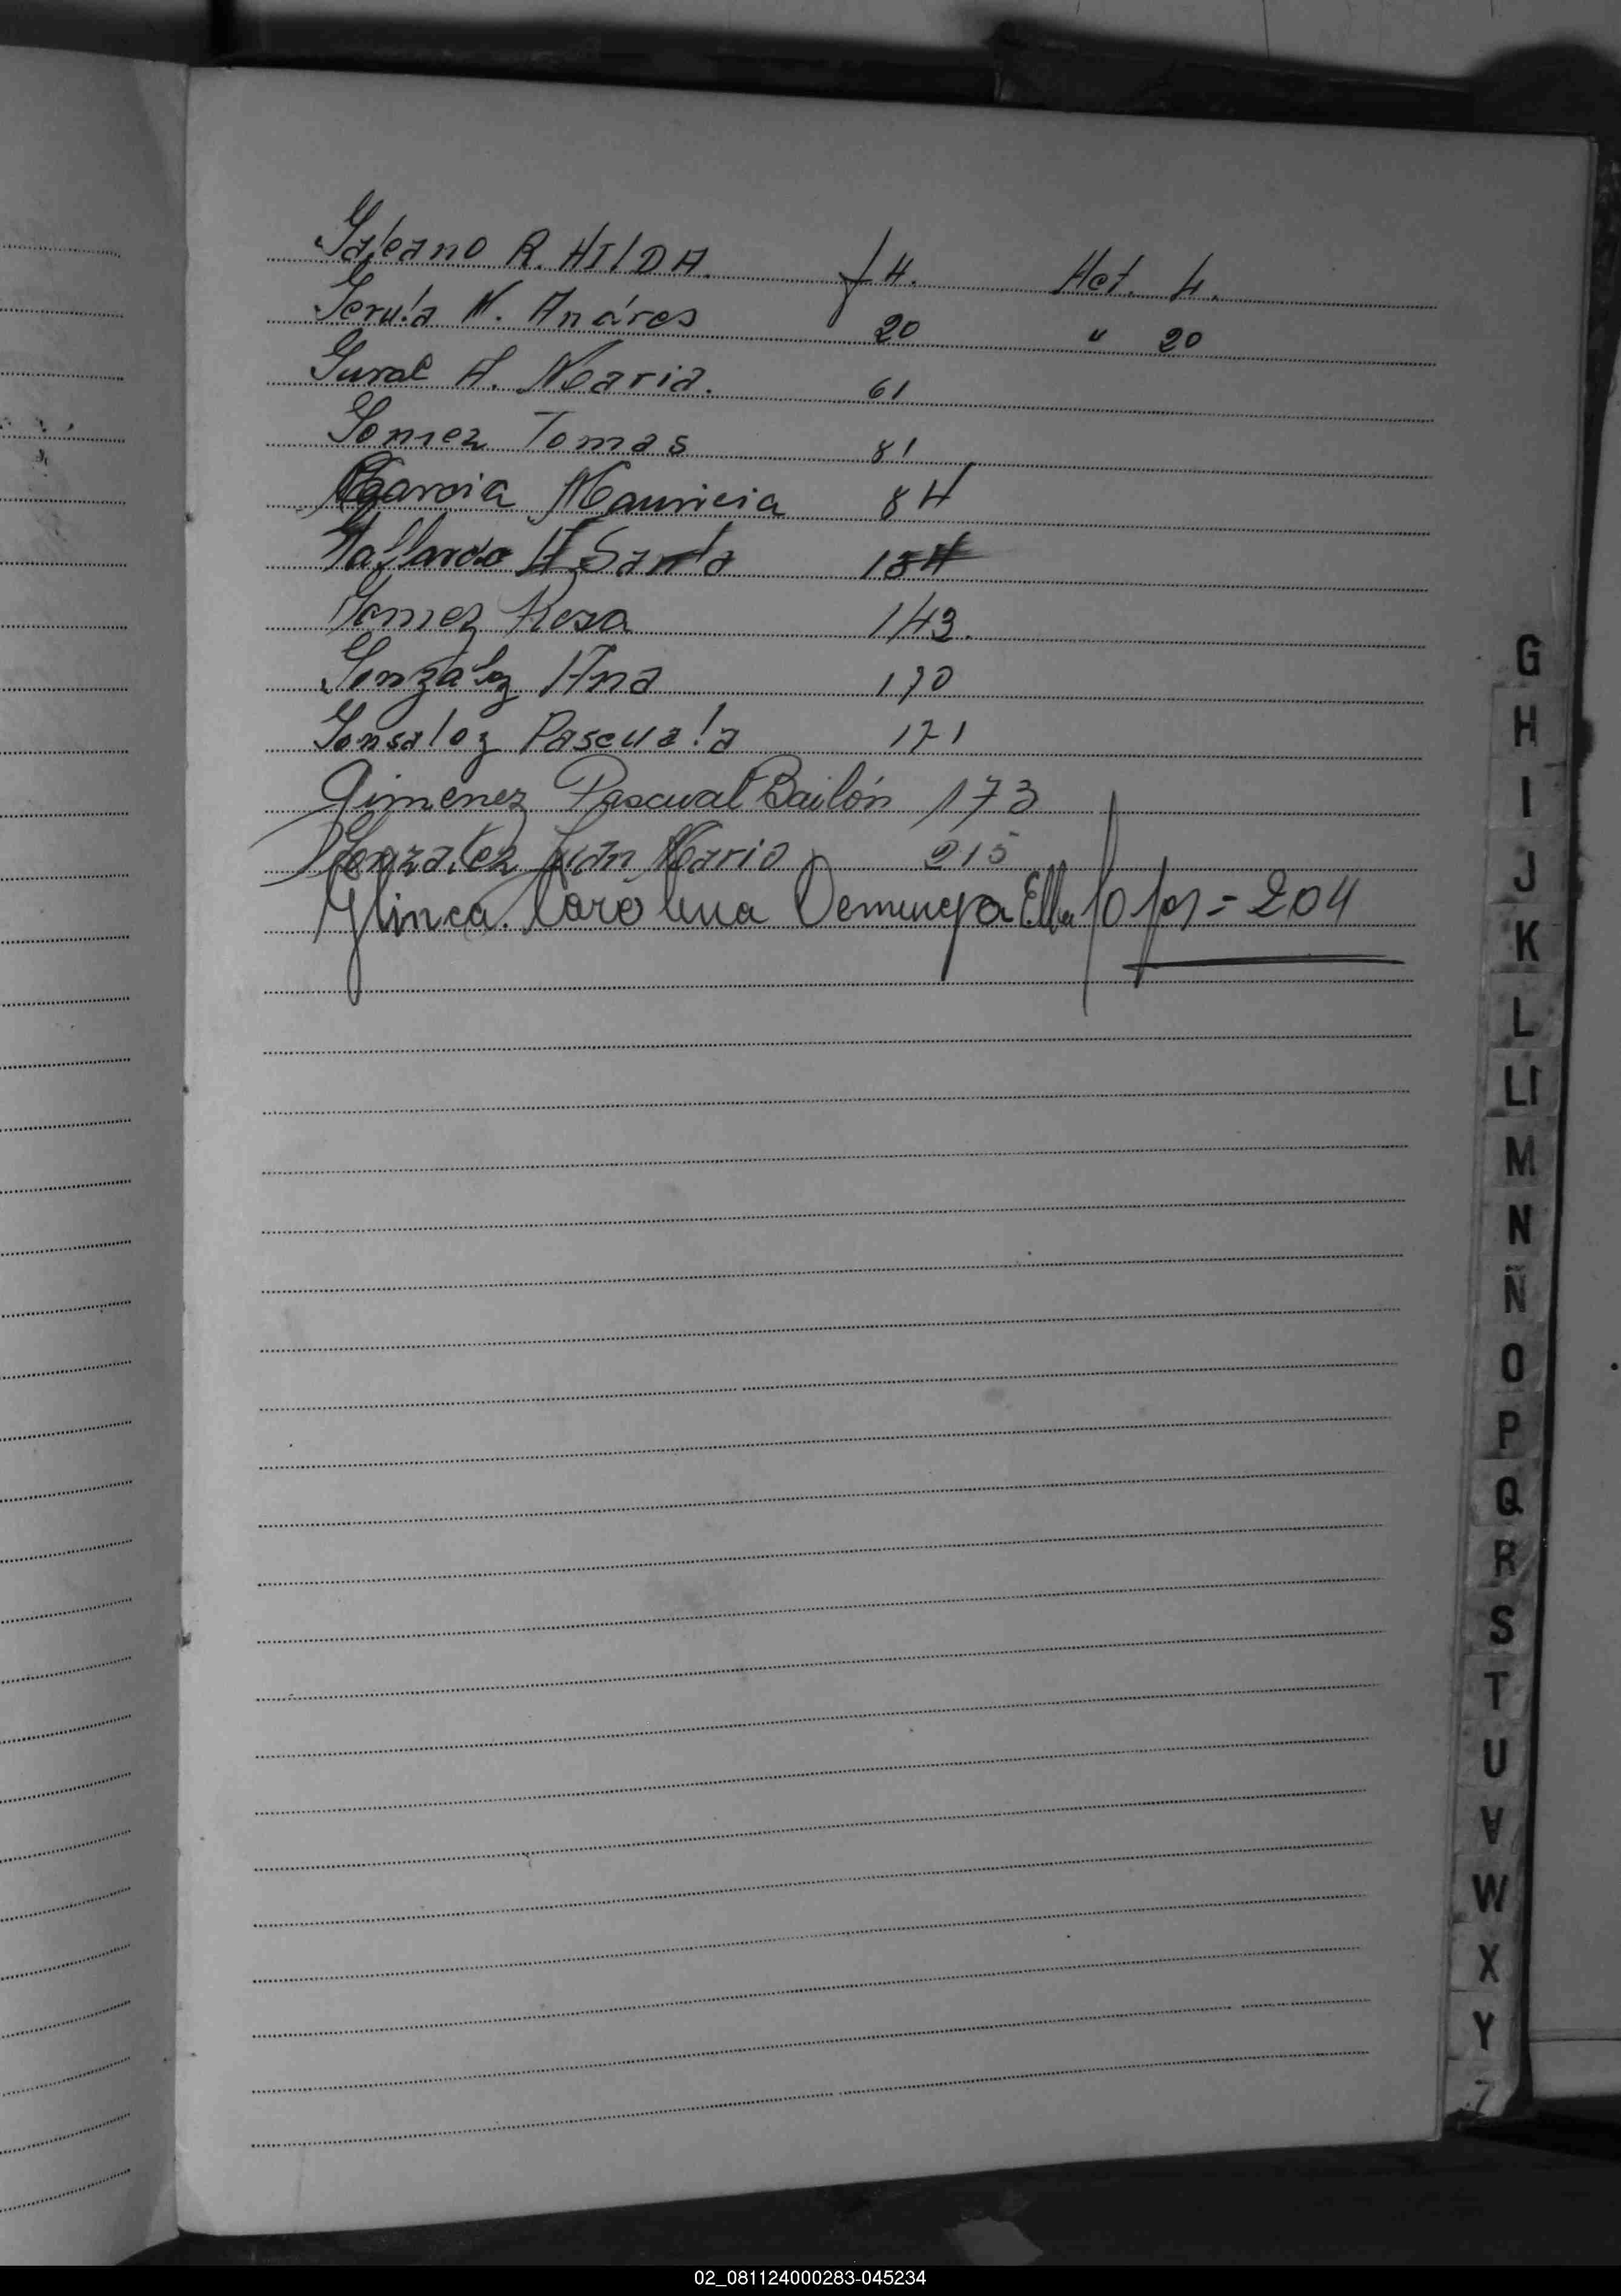 Galeano R. HILDA. f 4. Act. 4.
Gerula N. Andres 20 " 20
Gural A. Maria. 61
Gomez Tomas 81
Garcia Mauricia 84
Gallardo H. Santa
Gomez Rosa 143.
Gonzalez Ana 170
Gonsalez Pascuala 171
Gimenez Pascual Bailón 173
Gonzalez Juan Mario 215
Glinca. Carolina Dominga Ella fo for = 204
G
H
I
J
K
L
Ll
M
N
Ñ
O
P
Q
R
S
T
U
V
W
X
Y
Z
02_081124000283-045234